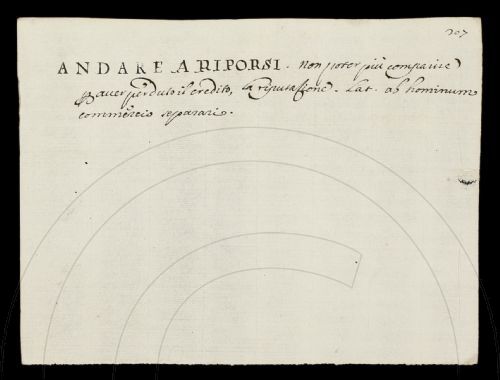 207
ANDARE A RIPORSI. Non poter più comparire
P aver perduto il credito, la riputazione. Lat. ab hominum
commercio separari.